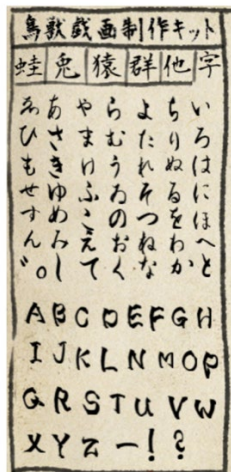 鳥獣戯画制作キット
蛙 兎 猿 群 他 字
いろはにほへと
ちりぬるをわか
よたれそつねな
らむうゐのおく
やまけふこえて
あさきゆめみし
ゑひもせすん゛。
A B C D E F G H
I J K L N M O P
Q R S T U V W
X Y Z ー ! ?